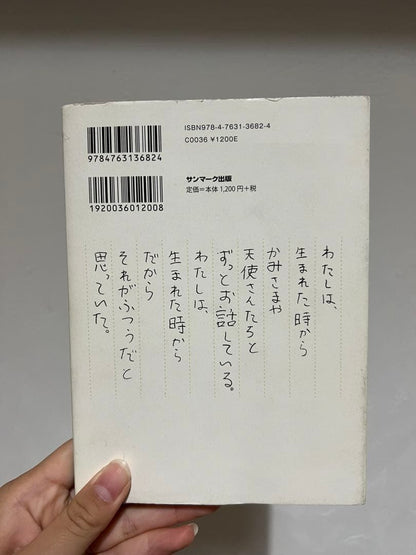 ISBN978-4-7631-3682-4
C0036 ¥1200E
9784763136824
サンマーク出版
定価=本体 1,200円+税
1920036012008
わたしは、
生まれた時から
かみさまや
天使さんたちと
ずっとお話している。
わたしは、
生まれた時から
だから
それがふつうだと
思っていた。